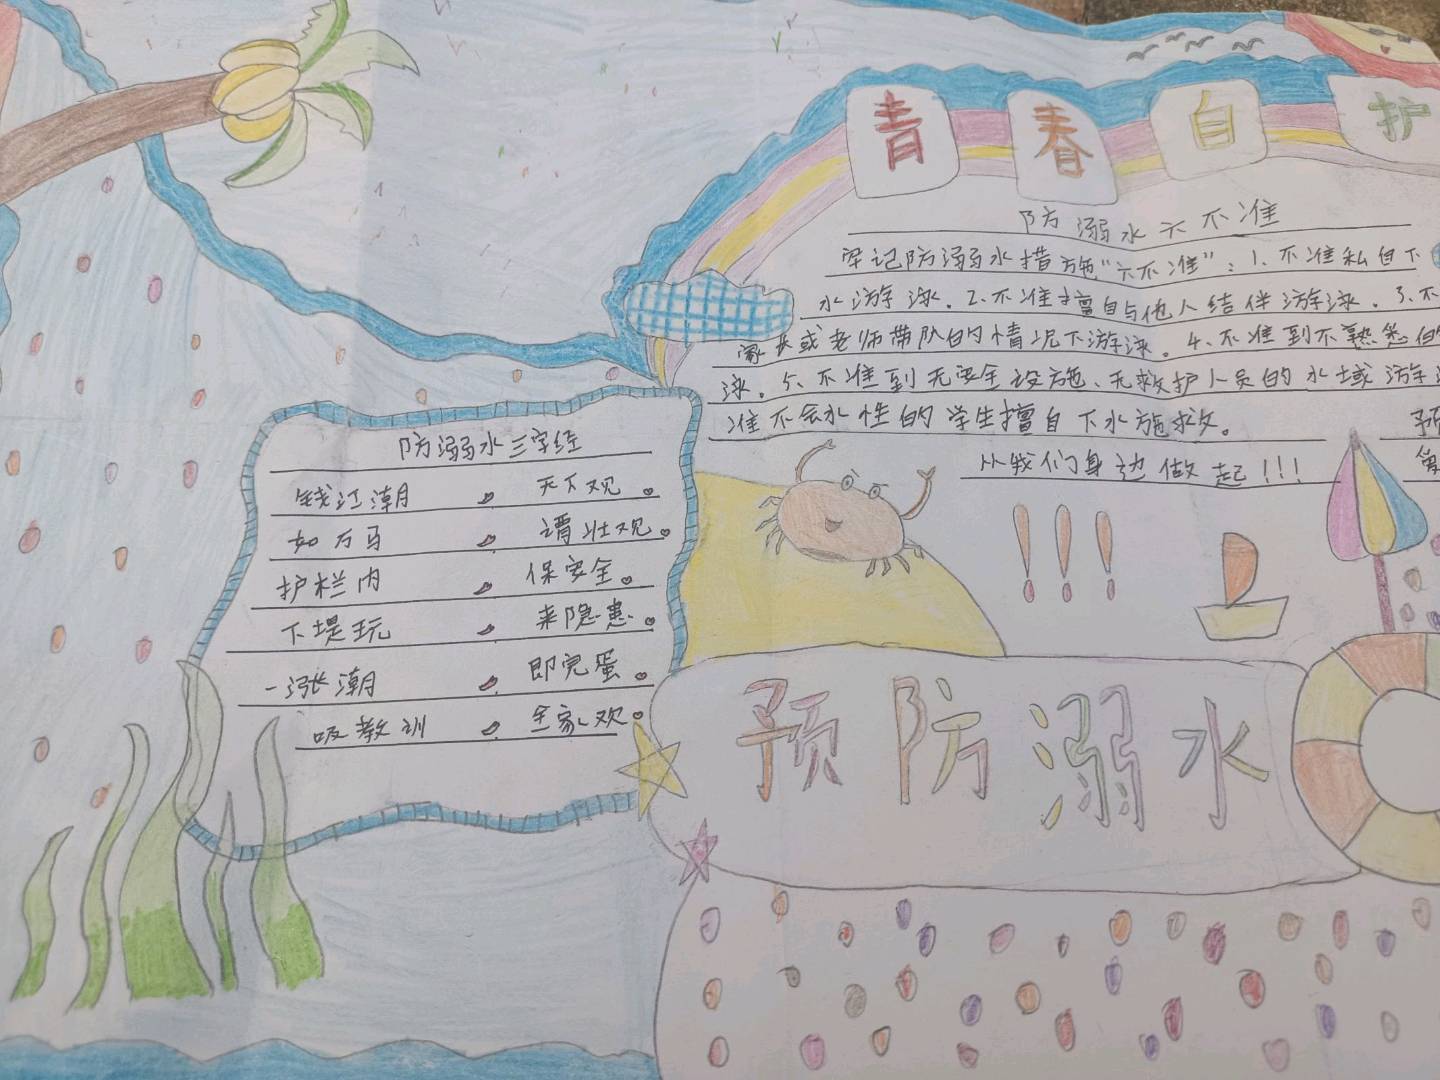 青春自护
防溺水六不准
牢记防溺水措施“六不准”：1、不准私自下
水游泳．2、不准擅自与他人结伴游泳．3、不
家长或老师带队的情况下游泳．4、不准到不熟悉的
泳．5、不准到无安全设施、无救护人员的水域游
准不会水性的学生擅自下水施救。
从我们身边做起！！！
预
防溺水三字经
钱江潮，天下观。
如万马，谓壮观。
护栏内，保安全。
下堤玩，来隐患。
一涨潮，即完蛋。
吸教训，全家欢。
！！！
预防溺水